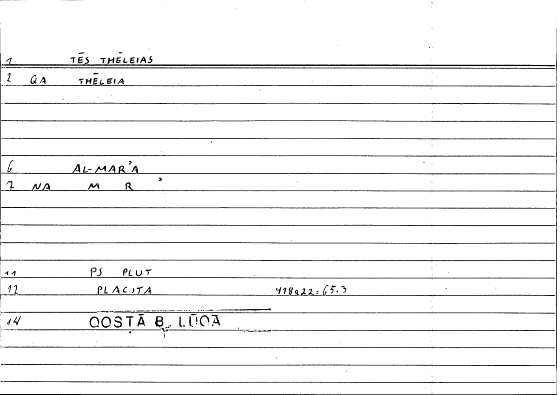 1 TĒS THĒLEIAS
2 GA THĒLEIA
6 AL-MAR'A
7 NA M R '
11 PS PLUT
12 PLACITA 418a22=65.3
14 QOSṬĀ B. LŪQĀ